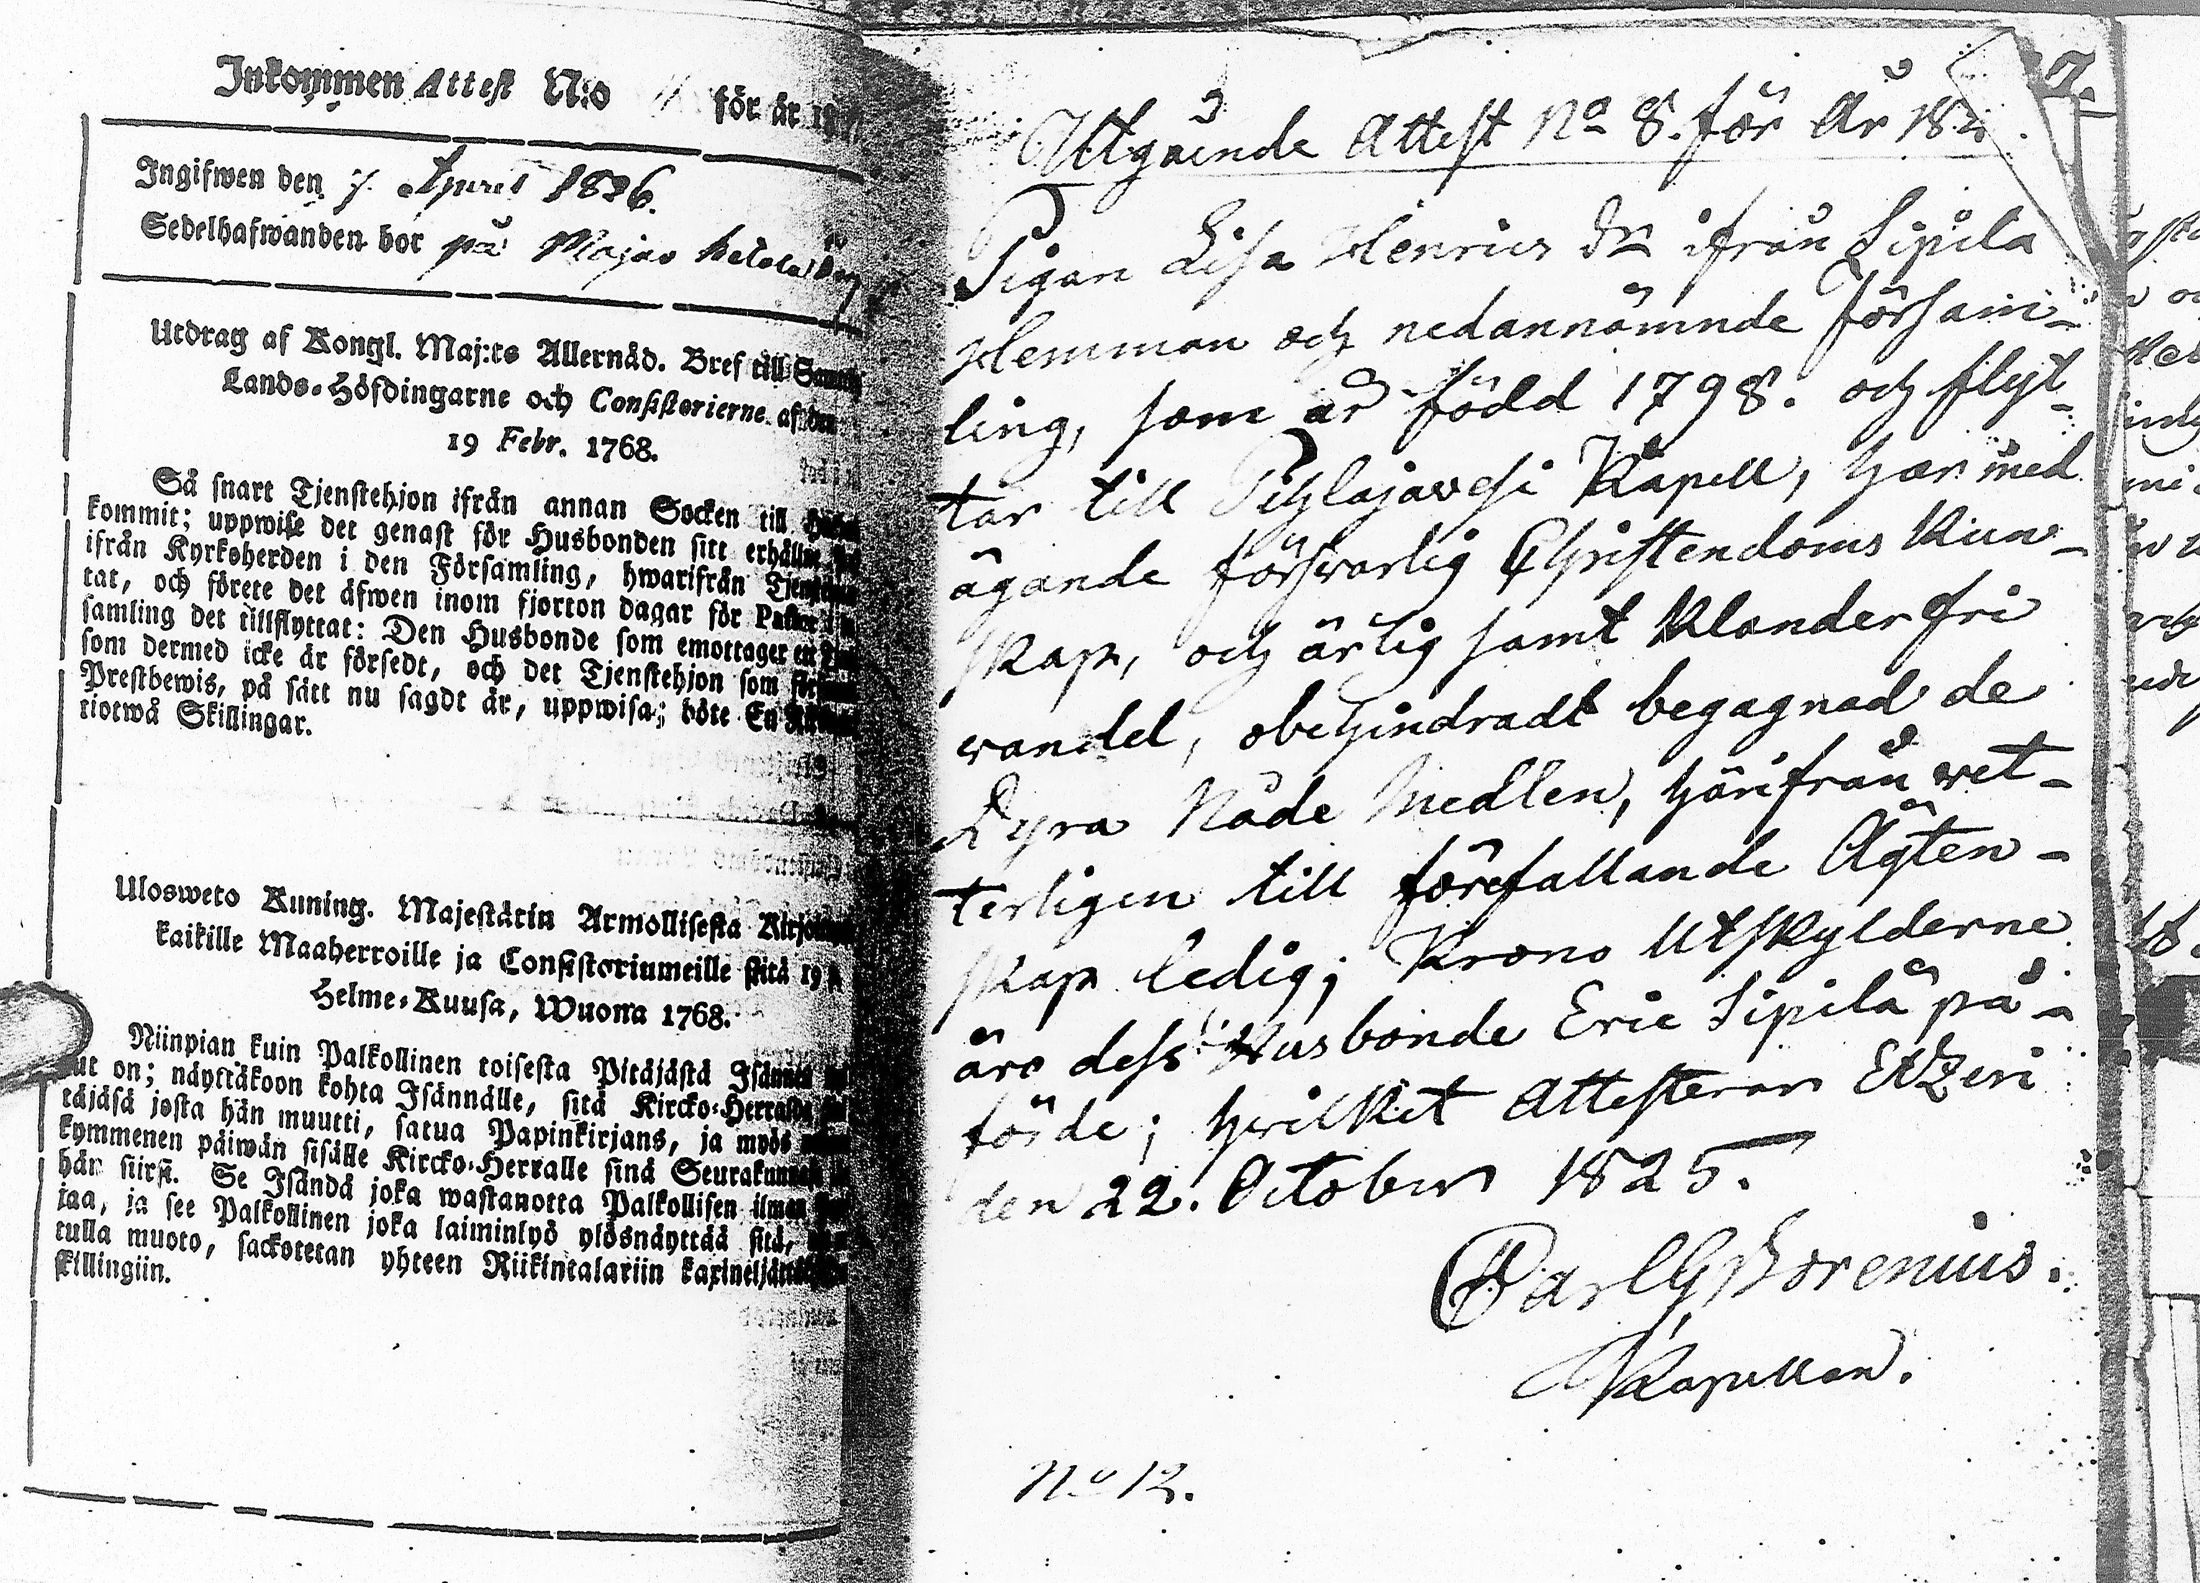 Inkommen Attest N:o för år 18
Ingifwen den 7. April 1826.
Sedelhafwanden bor på Majas
Utdrag af Kongl. Maj:ts Allernåd. Bref till
Lands-Höfdingarne och Consistorierne af den
19 Febr. 1768.
Så snart Tjenstehjon ifrån annan Socken till
kommit; uppwise det genast för Husbonden sitt
ifrån Kyrkoherden i den Församling, hwarifrån
tat, och förete det äfwen inom fjorton dagar för
samling det tillflyttat: Den Husbonde som emottager
som dermed icke är försedt, och det Tjenstehjon som
Prestbewis, på sätt nu sagdt är, uppwisa; böte En
tiotwå Skillingar.
Ulosweto Kuning. Majestätin Armollisesta
kaikille Maaherroille ja Consistoriumeille siitä 19
Helme-Kuusa, Wuonna 1768.
Niinpian kuin Palkollinen toisesta Pitäjästä
on; näyttäköön kohta Isännälle, sitä Kircko-Herralda
täjäsä josta hän muutti, satua Papinkirjans, ja myös
kymmenen päiwän sisälle Kircko-Herralle sinä
hän siirsi. Se Isändä joka wastanotta Palkollisen ilman
jaa, ja see Palkollinen joka laiminlyö ylösnäyttää sitä,
tulla muoto, sackotetan yhteen Riikintalariin
skillingiin.
7.
Utgående Attest No 8. för år 182
Pigan Lisa Henrics Dr ifrån Sipilä
Hemman och nedannämnde Försam-
ling, som är född 1798. och flyt-
tar till Pihlajavesi Kapell, har med
ägande försvarlig Christendoms Kun-
skap, och ärlig samt Klanderfri
vandel, obehindradt begagnad de
Dyra Nåde Medlen, härifrån vet-
terligen till förefallande Ägten-
skap ledig; Krono Utskylderne
äro dess Husbonde Eric Sipilä på-
förde; hvilket attesterar Etzeri
den 22. October 1825.
Carl G Borenius.
Kapellan.
No 12.